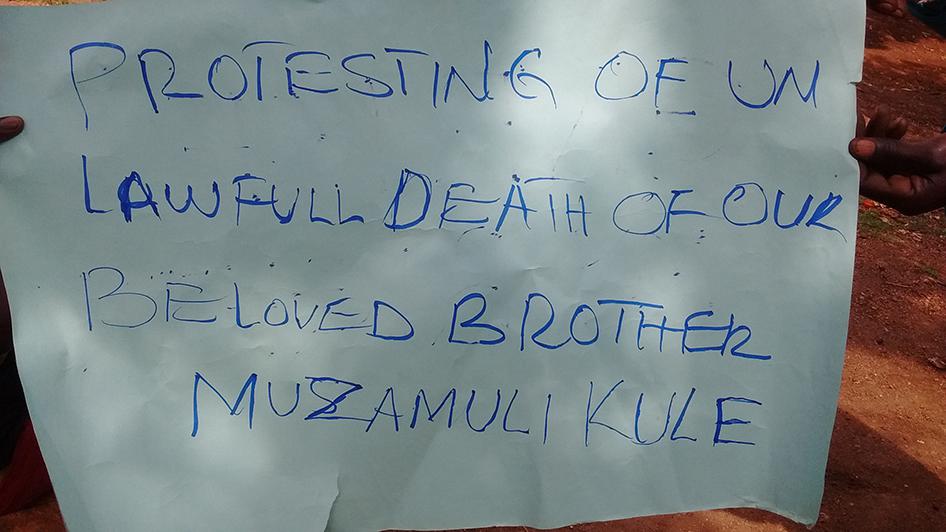 PROTESTING OF UN
LAWFULL DEATH OF OUR
BELOVED BROTHER
MUZAMULI KULE